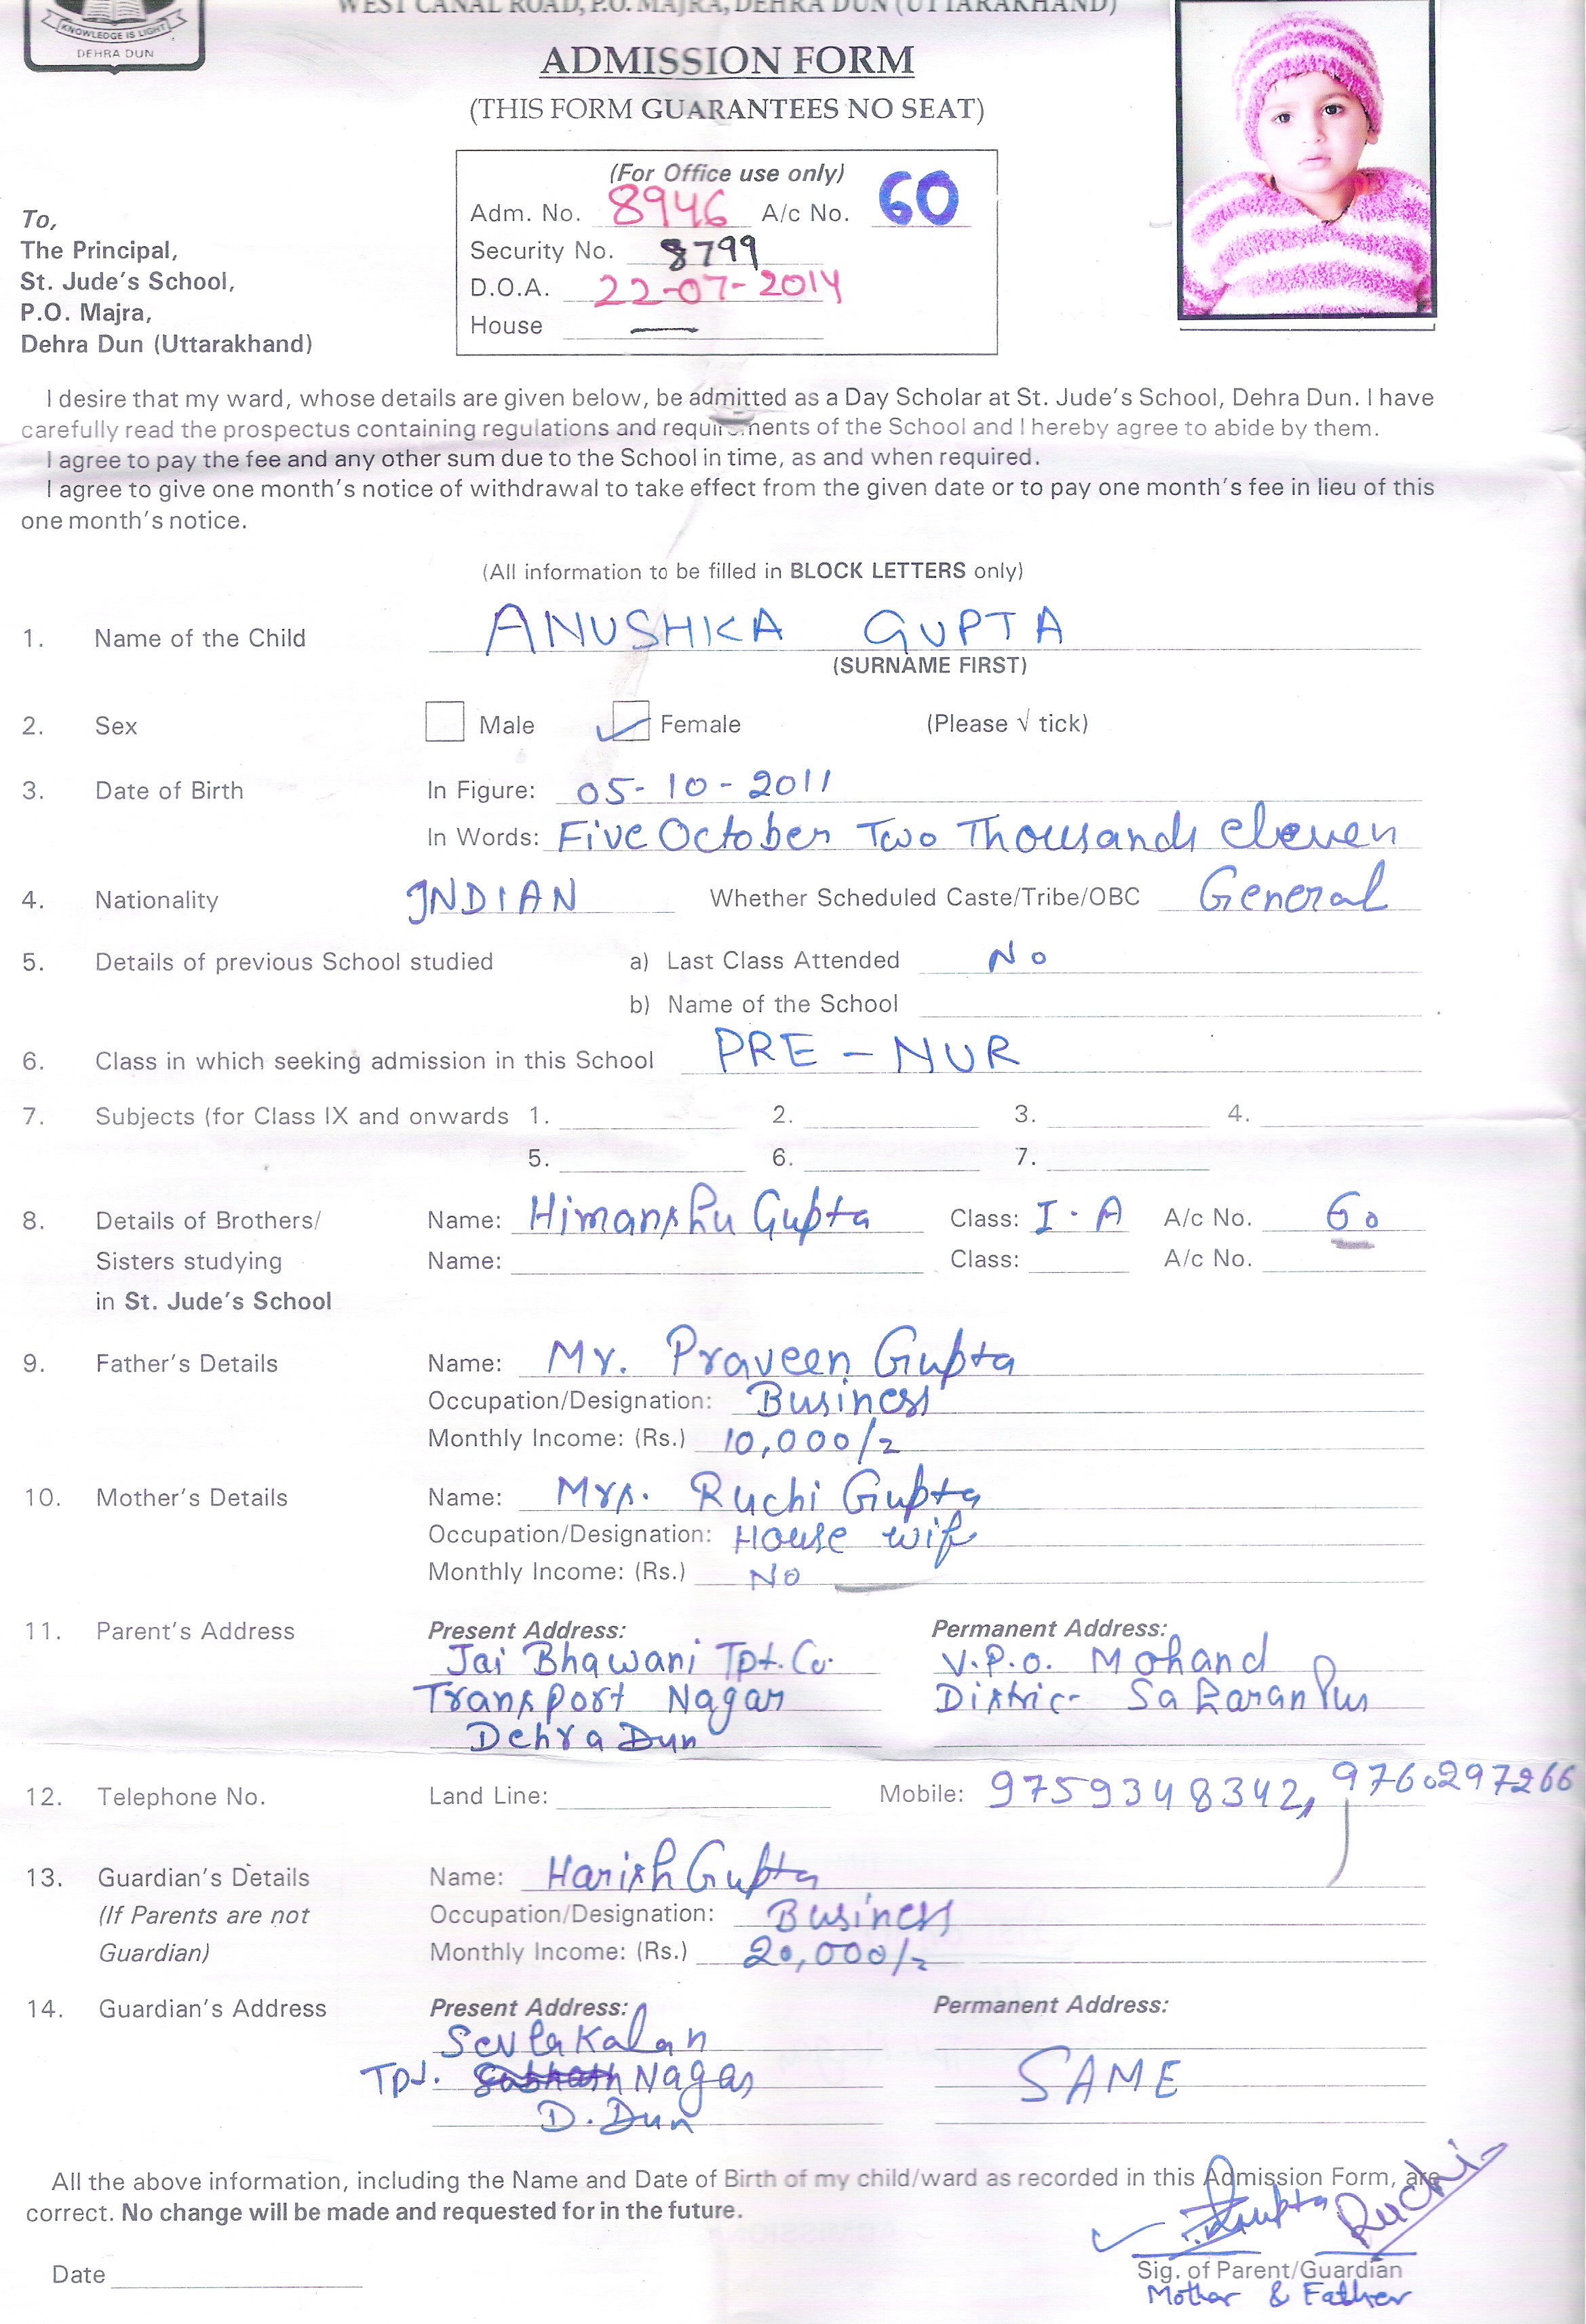 WEST CANAL ROAD, P.O. MAJRA, DEHRA DUN (UTTARAKHAND)
KNOWLEDGE IS LIGHT
DEHRA DUN
ADMISSION FORM
(THIS FORM GUARANTEES NO SEAT)
(For Office use only)
Adm. No. 8946 A/c No. 60
Security No. 8799
D.O.A. 22-07-2014
House —
To,
The Principal,
St. Jude's School,
P.O. Majra,
Dehra Dun (Uttarakhand)
I desire that my ward, whose details are given below, be admitted as a Day Scholar at St. Jude's School, Dehra Dun. I have
carefully read the prospectus containing regulations and requirements of the School and I hereby agree to abide by them.
I agree to pay the fee and any other sum due to the School in time, as and when required.
I agree to give one month's notice of withdrawal to take effect from the given date or to pay one month's fee in lieu of this
one month's notice.
(All information to be filled in BLOCK LETTERS only)
1. Name of the Child ANUSHKA GUPTA
(SURNAME FIRST)
2. Sex Male ✓ Female (Please √ tick)
3. Date of Birth In Figure: 05-10-2011
In Words: Five October Two Thousands eleven
4. Nationality INDIAN Whether Scheduled Caste/Tribe/OBC General
5. Details of previous School studied a) Last Class Attended No
b) Name of the School
6. Class in which seeking admission in this School PRE - NUR
7. Subjects (for Class IX and onwards 1. 2. 3. 4.
5. 6. 7.
8. Details of Brothers/ Name: Himanshu Gupta Class: I-A A/c No. 60
Sisters studying Name: Class: A/c No.
in St. Jude's School
9. Father's Details Name: Mr. Praveen Gupta
Occupation/Designation: Business
Monthly Income: (Rs.) 10,000/-
10. Mother's Details Name: Mrs. Ruchi Gupta
Occupation/Designation: House wife
Monthly Income: (Rs.) No
11. Parent's Address Present Address: Permanent Address:
Jai Bhawani Tpt. Co. V.P.O. Mohand
Transport Nagar Distric- Saharanpur
Dehra Dun
12. Telephone No. Land Line: Mobile: 9759348342, 9760297266
13. Guardian's Details Name: Harish Gupta
(If Parents are not Occupation/Designation: Business
Guardian) Monthly Income: (Rs.) 20,000/-
14. Guardian's Address Present Address: Permanent Address:
Sevla Kalan
Tpt. Nagar SAME
D. Dun
All the above information, including the Name and Date of Birth of my child/ward as recorded in this Admission Form, are
correct. No change will be made and requested for in the future.
Gupta Ruchi
Date Sig. of Parent/Guardian
Mother & Father